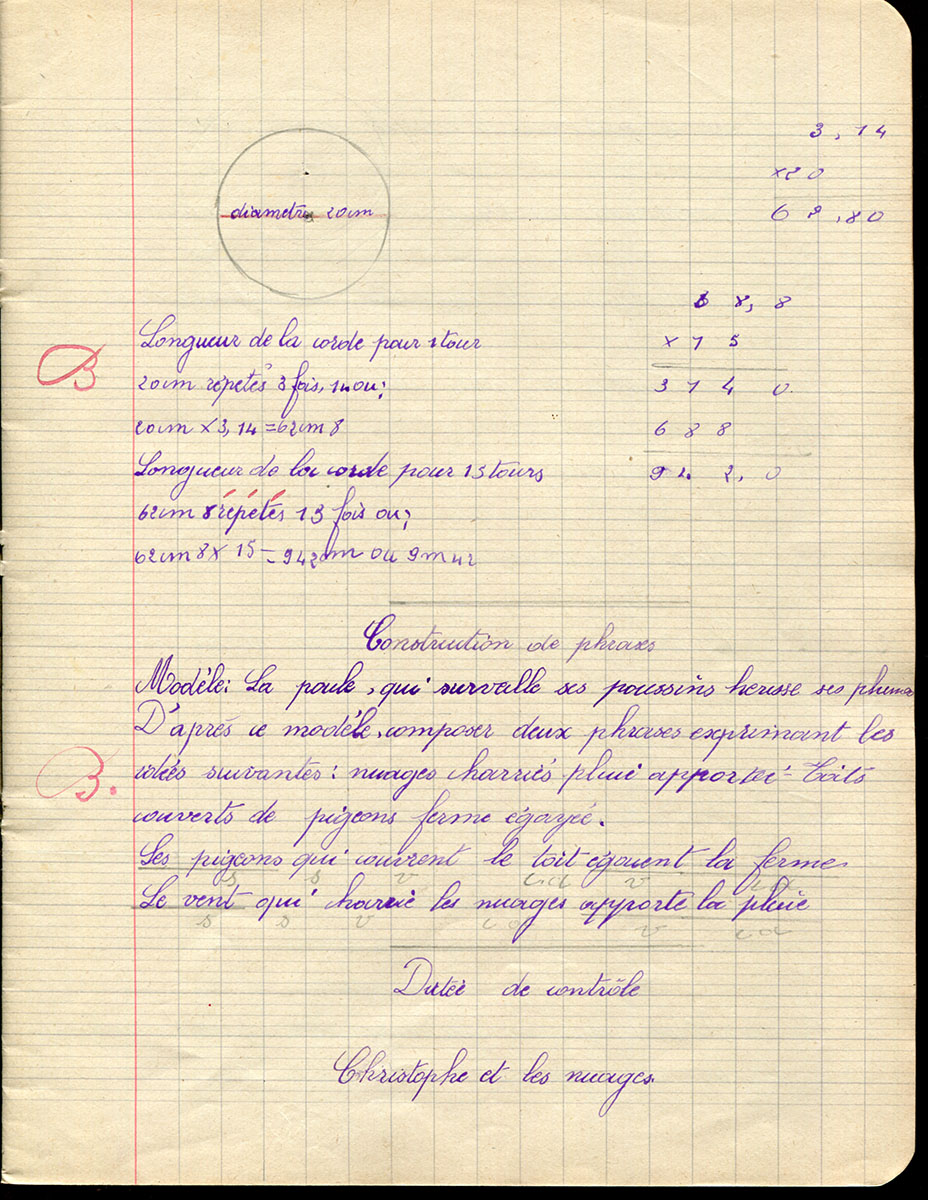 3,14
×20
62,80
diametre 20cm
6 8,8
× 1 5
3 1 4 0
6 8 8
9 4 2,0
Longueur de la corde pour 1 tour
B
20cm répetés 3 fois,14 ou;
20cm × 3,14 = 62cm 8
Longueur de la corde pour 15 tours
62cm 8 répétés 15 fois ou;
62cm 8 × 15 = 942cm ou 9m42
Construction de phrases
Modèle: La poule, qui surveille ses poussins hérisse ses
D'après ce modèle, composer deux phrases exprimant les
idées suivantes: nuages charriés pluie apportée - Toits
B.
couverts de pigeons ferme égayée.
Les pigeons qui couvrent le toit égaient la ferme
s s v cd v cd
Le vent qui charrie les nuages apporte la pluie
s s v cd v cd
Dictée de contrôle
Christophe et les nuages.